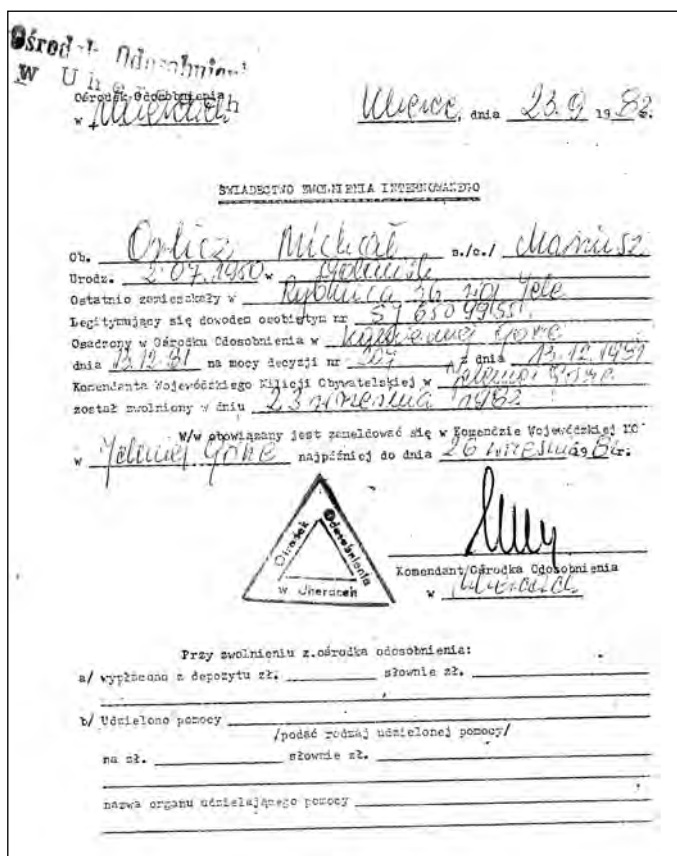 Ośrodek Odosobnienia
w Uhercach
Ośrodek Odosobnienia
w Uhercach
Uherce, dnia 23.9 1982r.
ŚWIADECTWO ZWOLNIENIA INTERNOWANEGO
Ob. Orlicz Michał s./c./ Mariusz
Urodz. 2.07.1950 w
Ostatnio zamieszkały w Rybnica 36 woj Jele
Legitymujący się dowodem osobistym nr
Osadzony w Ośrodku Odosobnienia w Kamiennej Górze
dnia 13.12.81 na mocy decyzji nr 207 z dnia 13.12.1981
Komendanta Wojewódzkiego Milicji Obywatelskiej w Jeleniej Górze
został zwolniony w dniu 23 września 1982
W/w obowiązany jest zameldować się w Komendzie Wojewódzkiej MO
w Jeleniej Górze najpóźniej do dnia 26 września 1982r.
Ośrodek Odosobnienia
w Uhercach
Komendant Ośrodka Odosobnienia
w Uhercach
Przy zwolnieniu z ośrodka odosobnienia:
a/ wypłacono z depozytu zł. słownie zł.
b/ Udzielono pomocy
/podać rodzaj udzielonej pomocy/
na zł. słownie zł.
nazwa organu udzielającego pomocy